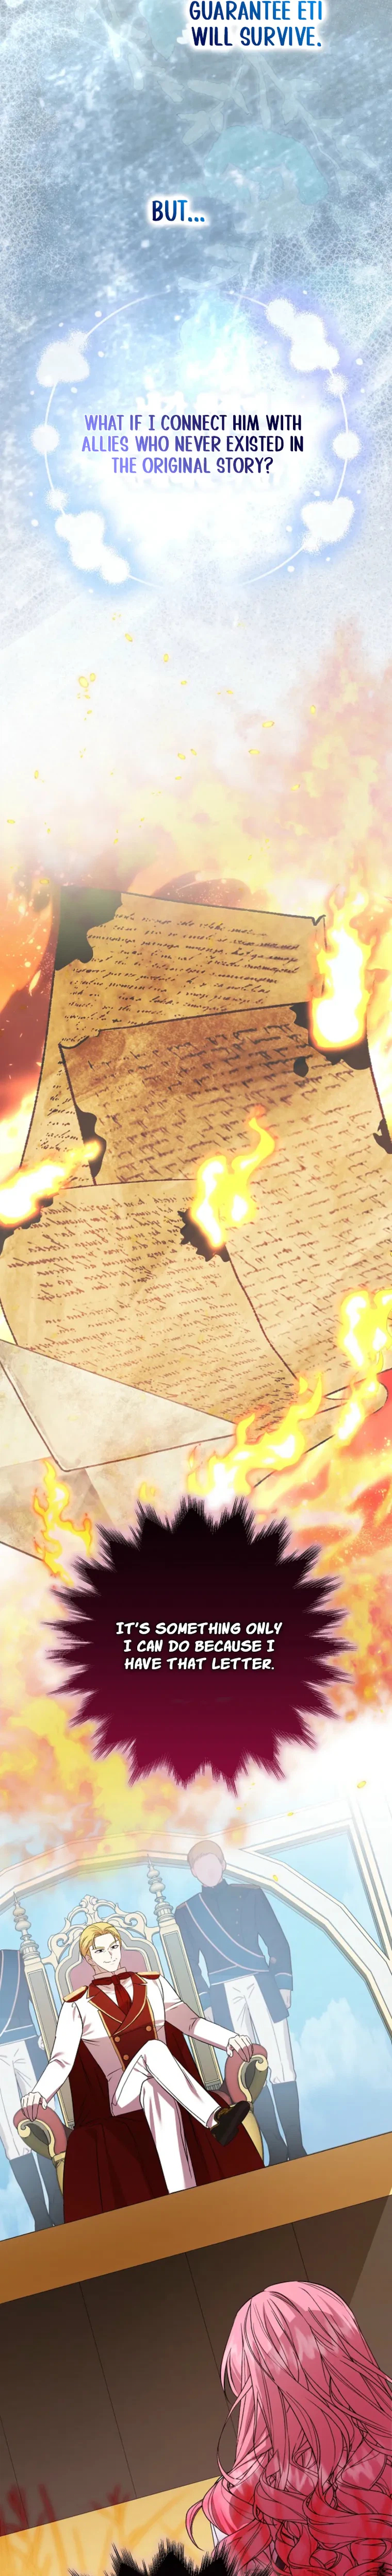 GUARANTEE ETI
WILL SURVIVE.
BUT...
WHAT IF I CONNECT HIM WITH
ALLIES WHO NEVER EXISTED IN
THE ORIGINAL STORY?
IT'S SOMETHING ONLY
I CAN DO BECAUSE I
HAVE THAT LETTER.